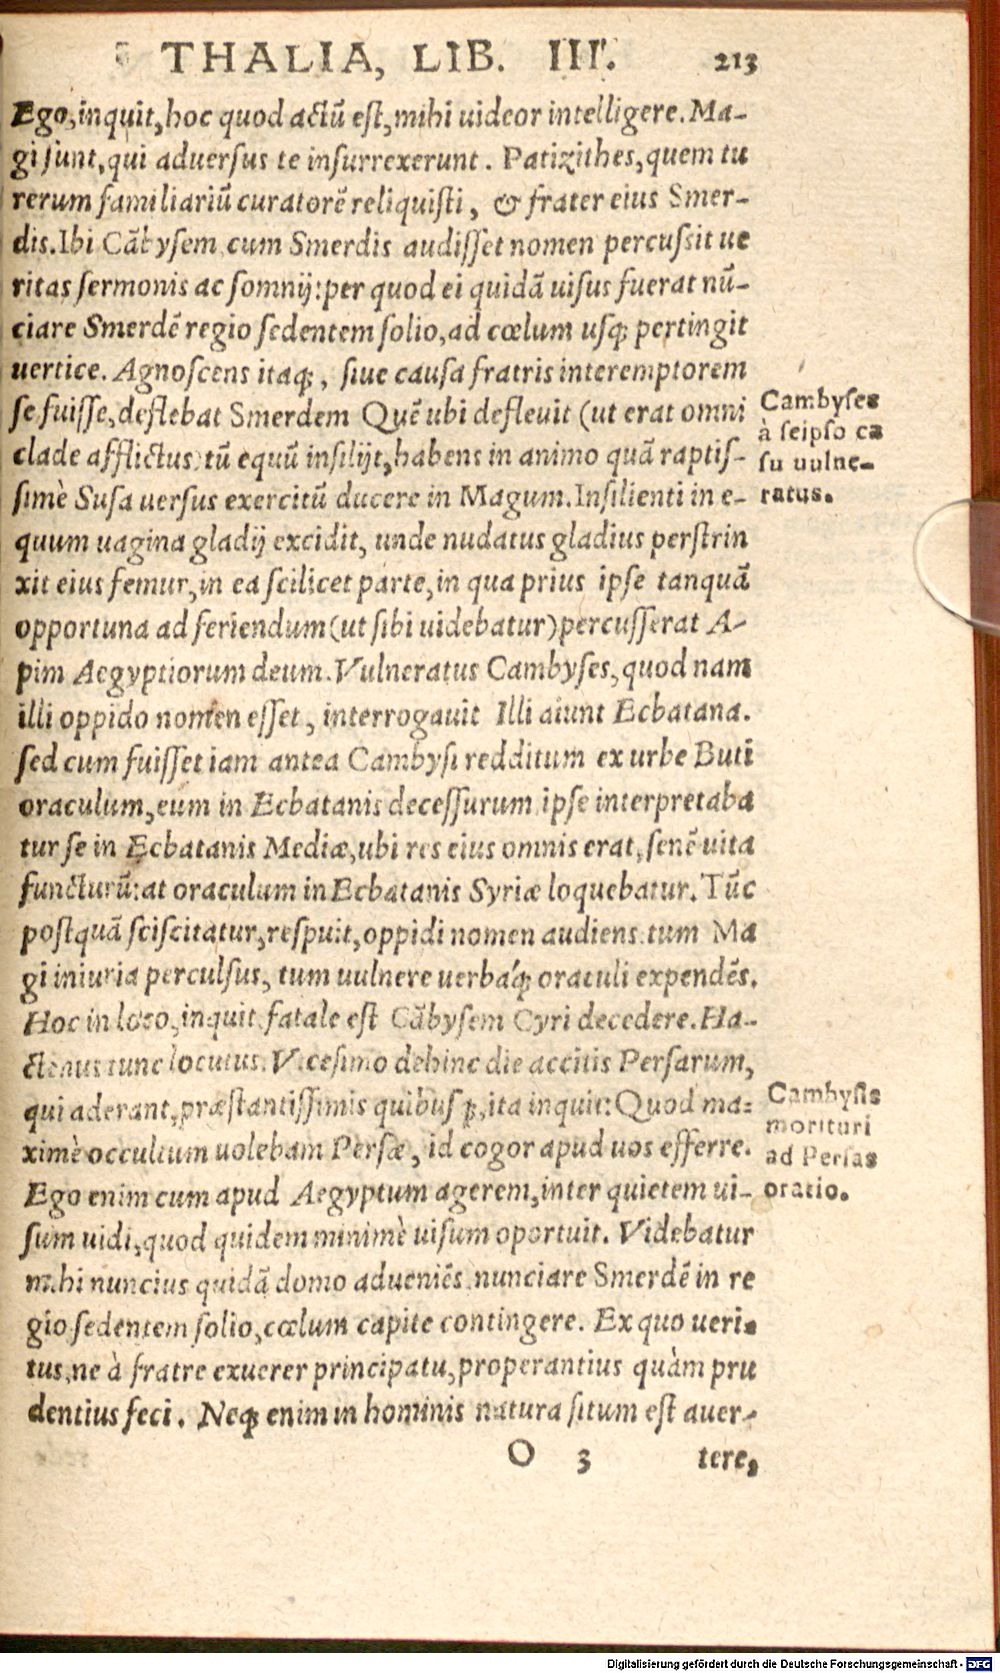 THALIA, LIB. III. 213
Ego, inquit, hoc quod actũ est, mihi uideor intelligere. Ma-
gi sunt, qui aduersus te insurrexerunt. Patizithes, quem tu
rerum familiariũ curatorẽ reliquisti, & frater eius Smer-
dis. Ibi Cãbysem cum Smerdis audisset nomen percussit ue
ritas sermonis ac somnij: per quod ei quidã uisus fuerat nũ-
ciare Smerdẽ regio sedentem solio, ad cœlum usq; pertingit
uertice. Agnoscens itaq;, siue causa fratris interemptorem
se fuisse, deflebat Smerdem Quẽ ubi defleuit (ut erat omni
clade afflictus) tũ equũ insilijt, habens in animo quã raptis-
simè Susa uersus exercitũ ducere in Magum. Insilienti in e-
quum uagina gladij excidit, unde nudatus gladius perstrin
xit eius femur, in ea scilicet parte, in qua prius ipse tanquã
opportuna ad feriendum (ut sibi uidebatur) percusserat A-
pim Aegyptiorum deum. Vulneratus Cambyses, quod nam
illi oppido nomen esset, interrogauit Illi aiunt Ecbatana.
sed cum fuisset iam antea Cambysi redditum ex urbe Buti
oraculum, eum in Ecbatanis decessurum ipse interpretaba
tur se in Ecbatanis Mediæ, ubi res eius omnis erat, senẽ uita
functurũ: at oraculum in Ecbatanis Syriæ loquebatur. Tũc
postquã sciscitatur, respuit, oppidi nomen audiens tum Ma
gi iniuria perculsus, tum uulnere uerbáq; oraculi expendẽs.
Hoc in loco, inquit, fatale est Cãbysem Cyri decedere. Ha-
ctenus tunc locutus. Vicesimo dehinc die accitis Persarum,
qui aderant, præstantissimis quibusq;, ita inquit: Quod ma-
ximè occultum uolebam Persæ, id cogor apud uos efferre.
Ego enim cum apud Aegyptum agerem, inter quietem ui-
sum uidi, quod quidem minimè uisum oportuit. Videbatur
mihi nuncius quidã domo adueniẽs nunciare Smerdẽ in re
gio sedentem solio, cœlum capite contingere. Ex quo ueri-
tus, ne à fratre exuerer principatu, properantius quàm pru
dentius feci. Neq; enim in hominis natura situm est auer-
O 3 tere,
Cambyses
à seipso ca
su uulne-
ratus.
Cambysis
morituri
ad Persas
oratio.
Digitalisierung gefördert durch die Deutsche Forschungsgemeinschaft - DFG